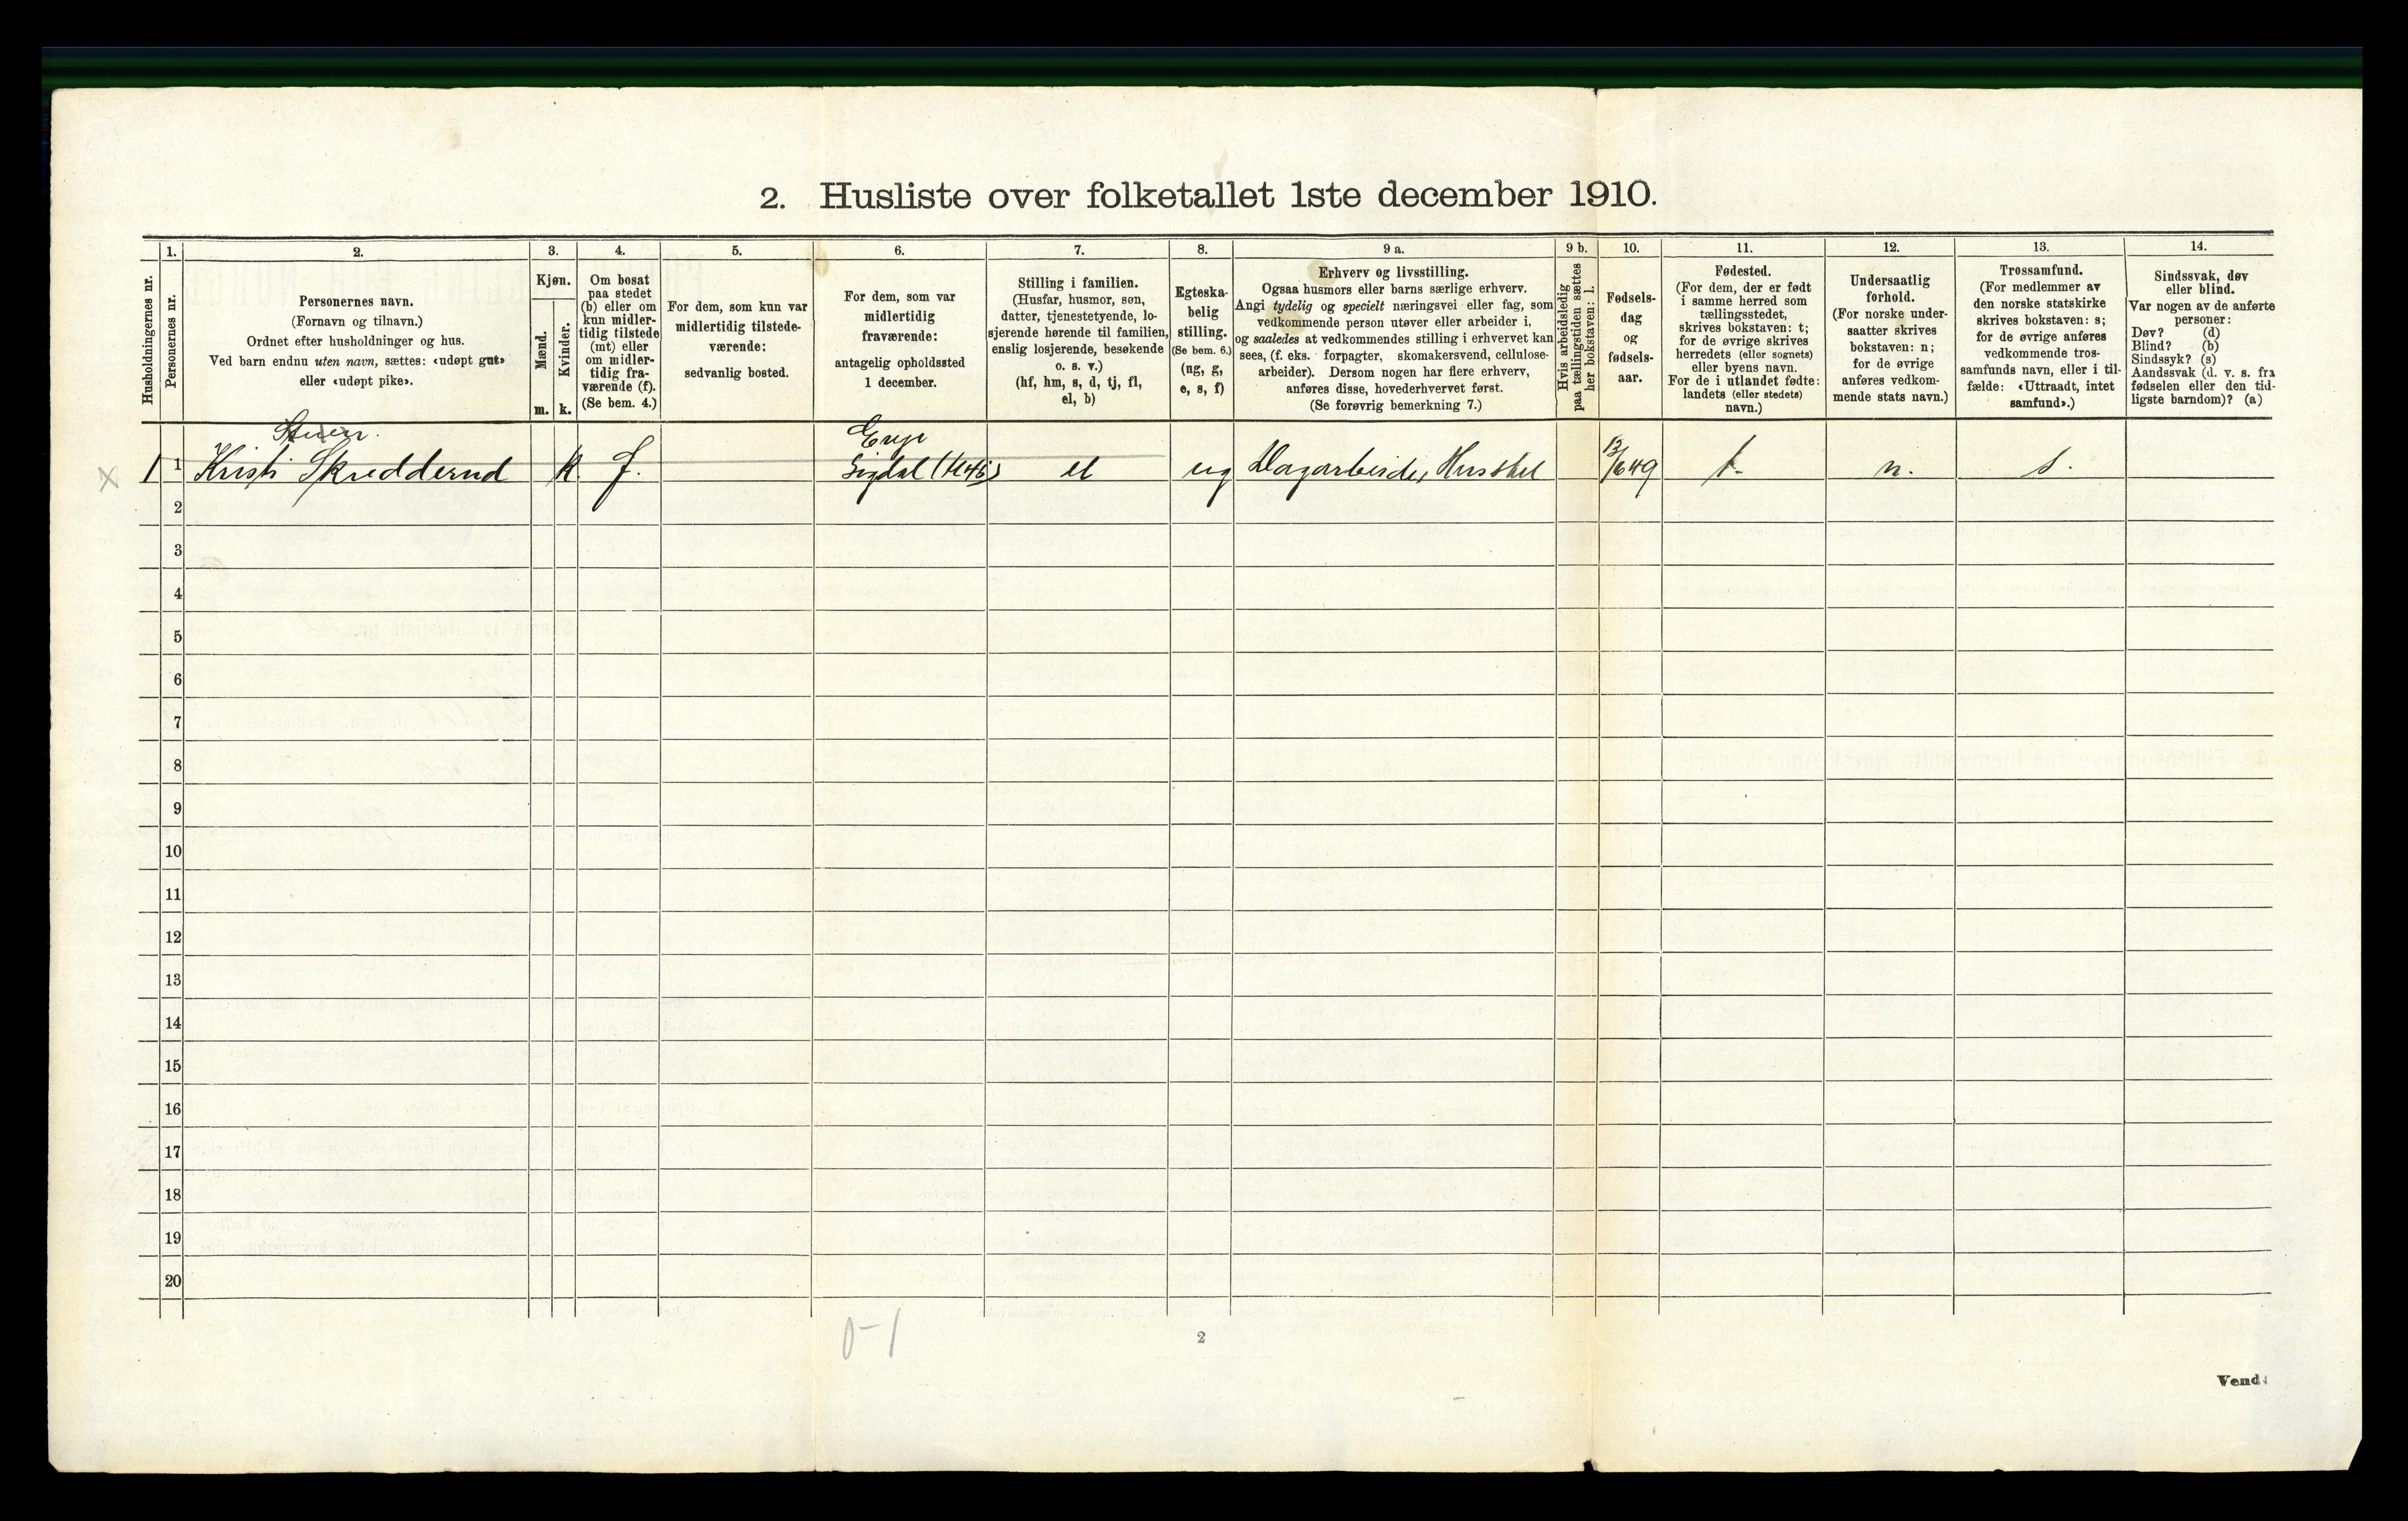 2. Husliste over folketallet 1ste december 1910.
Husholdningernes nr.
1.
Personernes nr.
2.
Personernes navn.
(Fornavn og tilnavn.)
Ordnet efter husholdninger og hus.
Ved barn endnu uten navn, sættes: «udøpt gut»
eller «udøpt pike».
3.
Kjøn.
Mænd.
Kvinder.
m. k.
4.
Om bosat
paa stedet
(b) eller om
kun midler-
tidig tilstede
(mt) eller
om midler-
tidig fra-
værende (f).
(Se bem. 4.)
5.
For dem, som kun var
midlertidig tilstede-
værende:
sedvanlig bosted.
6.
For dem, som var
midlertidig
fraværende:
antagelig opholdssted
1 december.
7.
Stilling i familien.
(Husfar, husmor, søn,
datter, tjenestetyende, lo-
sjerende hørende til familien,
enslig losjerende, besøkende
o. s. v.)
(hf, hm, s, d, tj, fl,
el, b)
8.
Egteska-
belig
stilling.
(Se bem. 6.)
(ug, g,
e, s, f)
9 a.
Erhverv og livsstilling.
Ogsaa husmors eller barns særlige erhverv.
Angi tydelig og specielt næringsvei eller fag, som
vedkommende person utøver eller arbeider i,
og saaledes at vedkommendes stilling i erhvervet kan
sees, (f. eks. forpagter, skomakersvend, cellulose-
arbeider). Dersom nogen har flere erhverv,
anføres disse, hovederhvervet først.
(Se forøvrig bemerkning 7.)
9 b.
Hvis arbeidsledig
paa tællingstiden sættes
her bokstaven: l.
10.
Fødsels-
dag
og
fødsels-
aar.
11.
Fødested.
(For dem, der er født
i samme herred som
tællingsstedet,
skrives bokstaven: t;
for de øvrige skrives
herredets (eller sognets)
eller byens navn.
For de i utlandet fødte:
landets (eller stedets)
navn.)
12.
Undersaatlig
forhold.
(For norske under-
saatter skrives
bokstaven: n;
for de øvrige
anføres vedkom-
mende stats navn.)
13.
Trossamfund.
(For medlemmer av
den norske statskirke
skrives bokstaven: s;
for de øvrige anføres
vedkommende tros-
samfunds navn, eller i til-
fælde: «Uttraadt, intet
samfund».)
14.
Sindssvak, døv
eller blind.
Var nogen av de anførte
personer:
Døv? (d)
Blind? (b)
Sindssyk? (s)
Aandssvak (d. v. s. fra
fødselen eller den tid-
ligste barndom)? (a)
x 1 1 Kristi Skredderud k. f. Sigdal el ug Dagarbeide, Husstel 13/6 49 t. n. s.
2
3
4
5
6
7
8
9
10
11
12
13
14
15
16
17
18
19
20
0-1
2
Vend